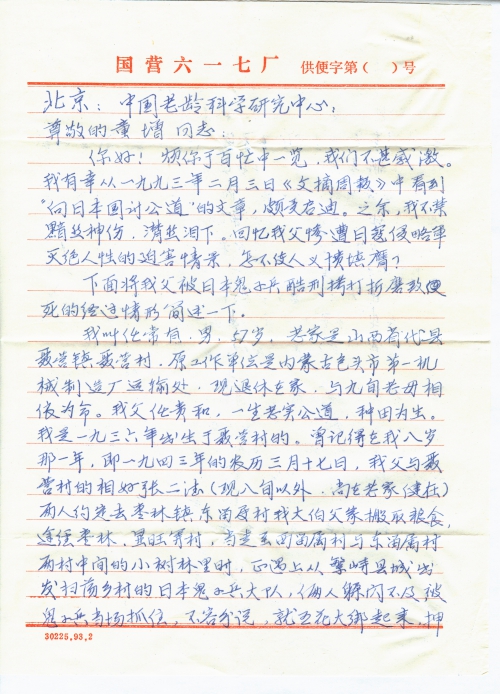 国营六一七厂 供便字第( )号
北京:中国老龄科学研究中心:
尊敬的童增同志
你好!烦你于百忙中一览,我们不甚感激。
我有幸从一九九三年二月三日《文摘周报》中看到
“向日本国讨公道”的文章,颇受启迪。之余,我不禁
黯然神伤,潸然泪下。回忆我父惨遭日寇侵略军
灭绝人性的迫害情景,怎不使人义愤填膺?
下面将我父被日本鬼子兵酷刑拷打折磨致
死的经过情形简述一下。
我叫任常有,男,57岁,老家是山西省代县
聂营镇聂营村,原工作单位是内蒙古包头市第一机
械制造厂运输处,现退休在家,与九旬老母相
依为命。我父任贵和,一生老实公道,种田为生。
我是一九三六年出生于聂营村的。曾记得在我八岁
那一年,即一九四三年的农历三月十七日,我父与聂
营村的相好张二法(现八旬以外,尚在老家健在)
两人约定去枣林镇东留属村我大伯父家搬取粮食,
途经枣林、里旺等村,当走至西留属村与东留属村
两村中间的小树林里时,正遇上从繁峙县城出
发扫荡乡村的日本鬼子兵大队,俩人躲闪不及被
鬼子兵当场抓住,不容分说,就五花大绑起来,押
30225.93.2